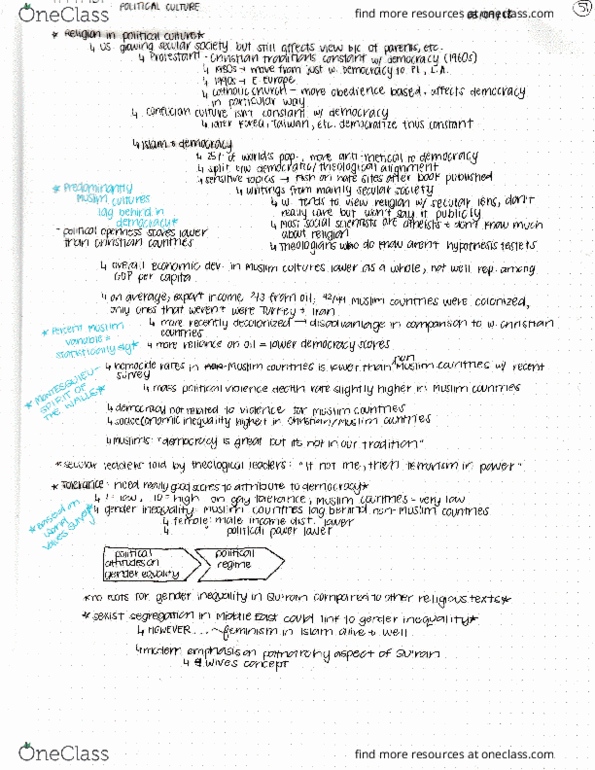 OneClass
POLITICAL CULTURE
find more resources at oneclass.com
51
* Religion in political culture *
↳ US: growing secular society but still affects view b/c of parents, etc.
↳ Protestant-Christian traditions constant w/ democracy (1960s)
↳ 1980s → move from just w. democracy to P.I., L.A.
↳ 1990s → E. Europe
↳ Catholic church - more obedience based, affects democracy
in particular way
↳ Confucian culture isn't constant w/ democracy
↳ later Korea, Taiwan, etc. democratize thus constant
↳ Islam & democracy
↳ 25% of world's pop., more anti-thetical to democracy
↳ split b/w democratic/theological alignment
↳ sensitive topics → Fish on hate sites after book published
↳ writings from mainly secular society
↳ W. tends to view religion w/ secular lens, don't
really care but won't say it publicly
↳ Most social scientists are atheists & don't know much
about religion
↳ Theologians who do know aren't hypothesis testers
* Predominantly
Muslim cultures
lag behind in
democracy *
- political openness scores lower
than Christian countries
↳ overall economic dev. in Muslim cultures lower as a whole, not well rep. among
GDP per capita
↳ on average, export income 2/3 from oil; 42/44 Muslim countries were colonized,
only ones that weren't were Turkey + Iran
↳ more recently decolonized → disadvantage in comparison to w. Christian
countries
↳ more reliance on oil = lower democracy scores
* Percent Muslim
variable =
statistically sig *
↳ homicide rates in Muslim countries is lower than non Muslim countries w/ recent
survey
↳ mass political violence death rate slightly higher in Muslim countries
* Montesquieu -
spirit of
the
↳ democracy not related to violence for Muslim countries
↳ socioeconomic inequality highest in Christian/Muslim countries
↳ Muslims: "democracy is great but its not in our tradition"
* secular leaders told by theological leaders: "If not me, then terrorism in power"
* Tolerance: need really good scores to attribute to democracy *
↳ 1 = low, 10 = high on gay tolerance; Muslim countries - very low
↳ gender inequality: Muslim countries lag behind non-Muslim countries
↳ female: male income dist. lower
↳ political power lower
* Based on
World
Values Survey *
political
attitudes on
gender equality
political
regime
* no roots for gender inequality in Qu'ran compared to other religious texts *
* sexist segregation in Middle East could link to gender inequality *
↳ HOWEVER... ~feminism in Islam alive & well
↳ modern emphasis on patriarchy aspect of Qu'ran
↳ 4 wives concept
OneClass
find more resources at oneclass.com